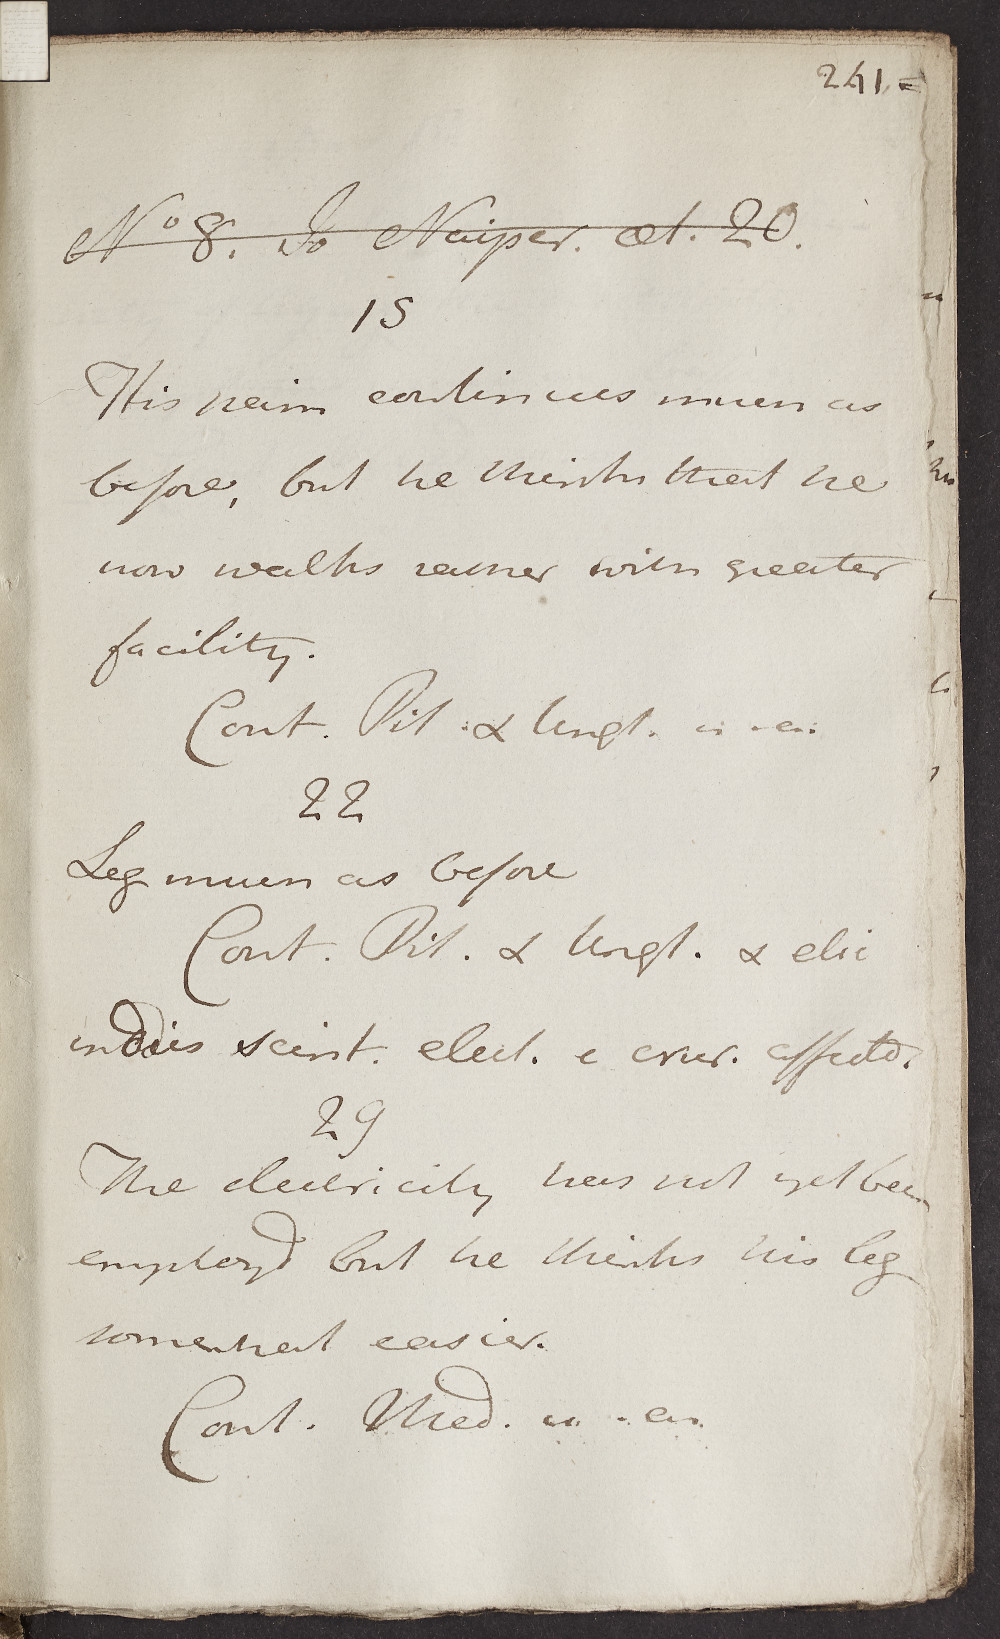 241=
No 8. Jo Naiper. æt. 20.
15
His pain continues much as
before, but he thinks that he
now walks rather with greater
facility.
Cont. Pil. & Ungt.
22
Leg much as before
Cont. Pil. & Ungt. & elic
indies scint. elect. e crur. affecto.
29
The electricity has not yet been
employd but he thinks his leg
somewhat easier.
Cont. Med.